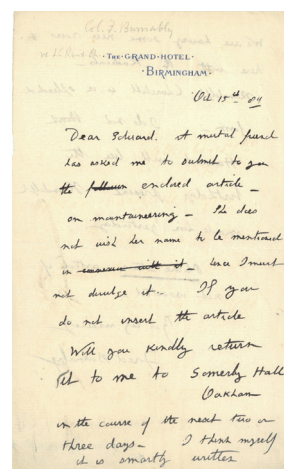 Col. F. Burnably
· THE · GRAND · HOTEL ·
· BIRMINGHAM ·
Oct 15th 84
Dear Edward. A mutual friend
has asked me to submit to you
the enclosed article —
on mountaineering — She does
not wish her name to be mentioned
in connexion with it — hence I must
not divulge it — If you
do not insert the article
Will you kindly return
it to me to Somerby Hall
Oakham
in the course of the next two or
three days — I think myself
it is smartly written